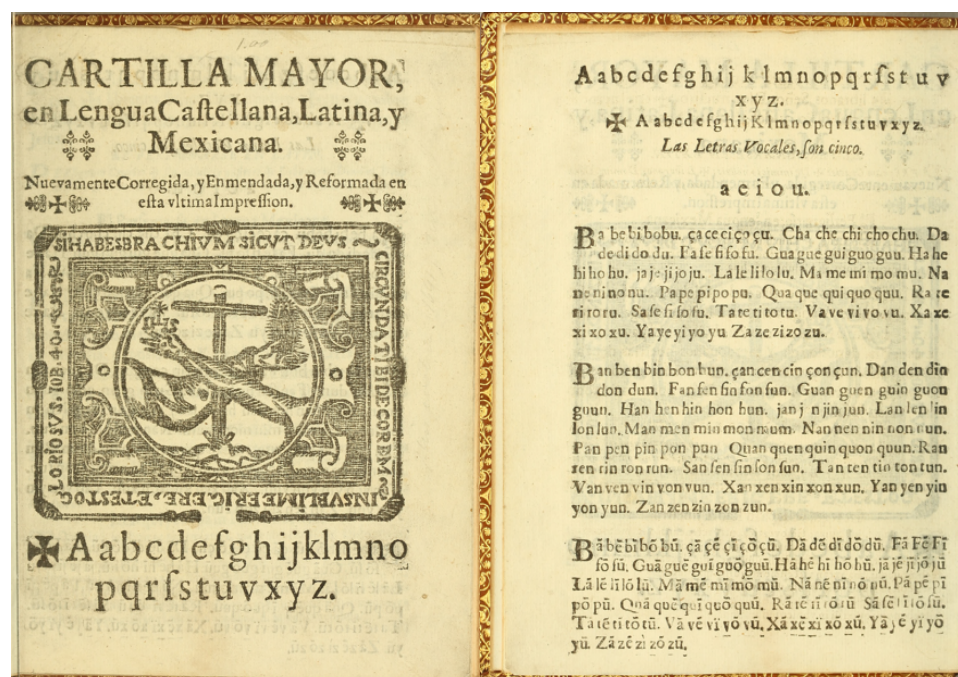 CARTILLA MAYOR,
en Lengua Caſtellana, Latina, y
Mexicana.
Nuevamente Corregida, y Enmendada, y Reformada en
eſta vltima Impreſſion.
SI HABES BRACHIVM SICVT DEVS
CIRCVNDATIBIDECOREM
INSVBLIME ERIGERE, ET ESTO G
LORIOSVS. IOB. 40.
✠ A a b c d e f g h i j k l m n o
p q r ſ s t u v x y z.
A a b c d e f g h i j k l m n o p q r ſ s t u v
x y z.
✠ A a b c d e f g h i j K l m n o p q r ſ s t u v x y z.
Las Letras Vocales, ſon cinco.
a e i o u.
Ba be bi bo bu. ça ce ci ço çu. Cha che chi cho chu. Da
de di do du. Fa fe fi fo fu. Gua gue gui guo guu. Ha he
hi ho hu. ja je ji jo ju. La le li lo lu. Ma me mi mo mu. Na
ne ni no nu. Pa pe pi po pu. Qua que qui quo quu. Ra re
ri ro ru. Sa ſe ſi ſo ſu. Ta te ti to tu. Va ve vi vo vu. Xa xe
xi xo xu. Ya ye yi yo yu Za ze zi zo zu.
Ban ben bin bon bun. çan cen cin çon çun. Dan den din
don dun. Fan fen fin fon fun. Guan guen guin guon
guun. Han hen hin hon hun. jan j n jin jun. Lan len lin
lon lun. Man men min mon mum. Nan nen nin non nun.
Pan pen pin pon pun Quan quen quin quon quun. Ran
ren rin ron run. San ſen ſin ſon ſun. Tan ten tin ton tun.
Van ven vin von vun. Xan xen xin xon xun. Yan yen yin
yon yun. Zan zen zin zon zun.
Bā bē bī bō bū. çā çē çī çō çū. Dā dē dī dō dū. Fā Fē Fī
fō fū. Guā guē guī guō guū. Hā hē hī hō hū. jā jē jī jō jū
Lā lē lī lō lū. Mā mē mī mō mū. Nā nē nī nō nū. Pā pē pī
pō pū. Quā quē quī quō quū. Rā rē rī rō rū Sā ſē ſī ſō ſū.
Tā tē tī tō tū. Vā vē vī vō vū. Xā xē xī xō xū. Yā yē yī yō
yū. Zā zē zī zō zū.